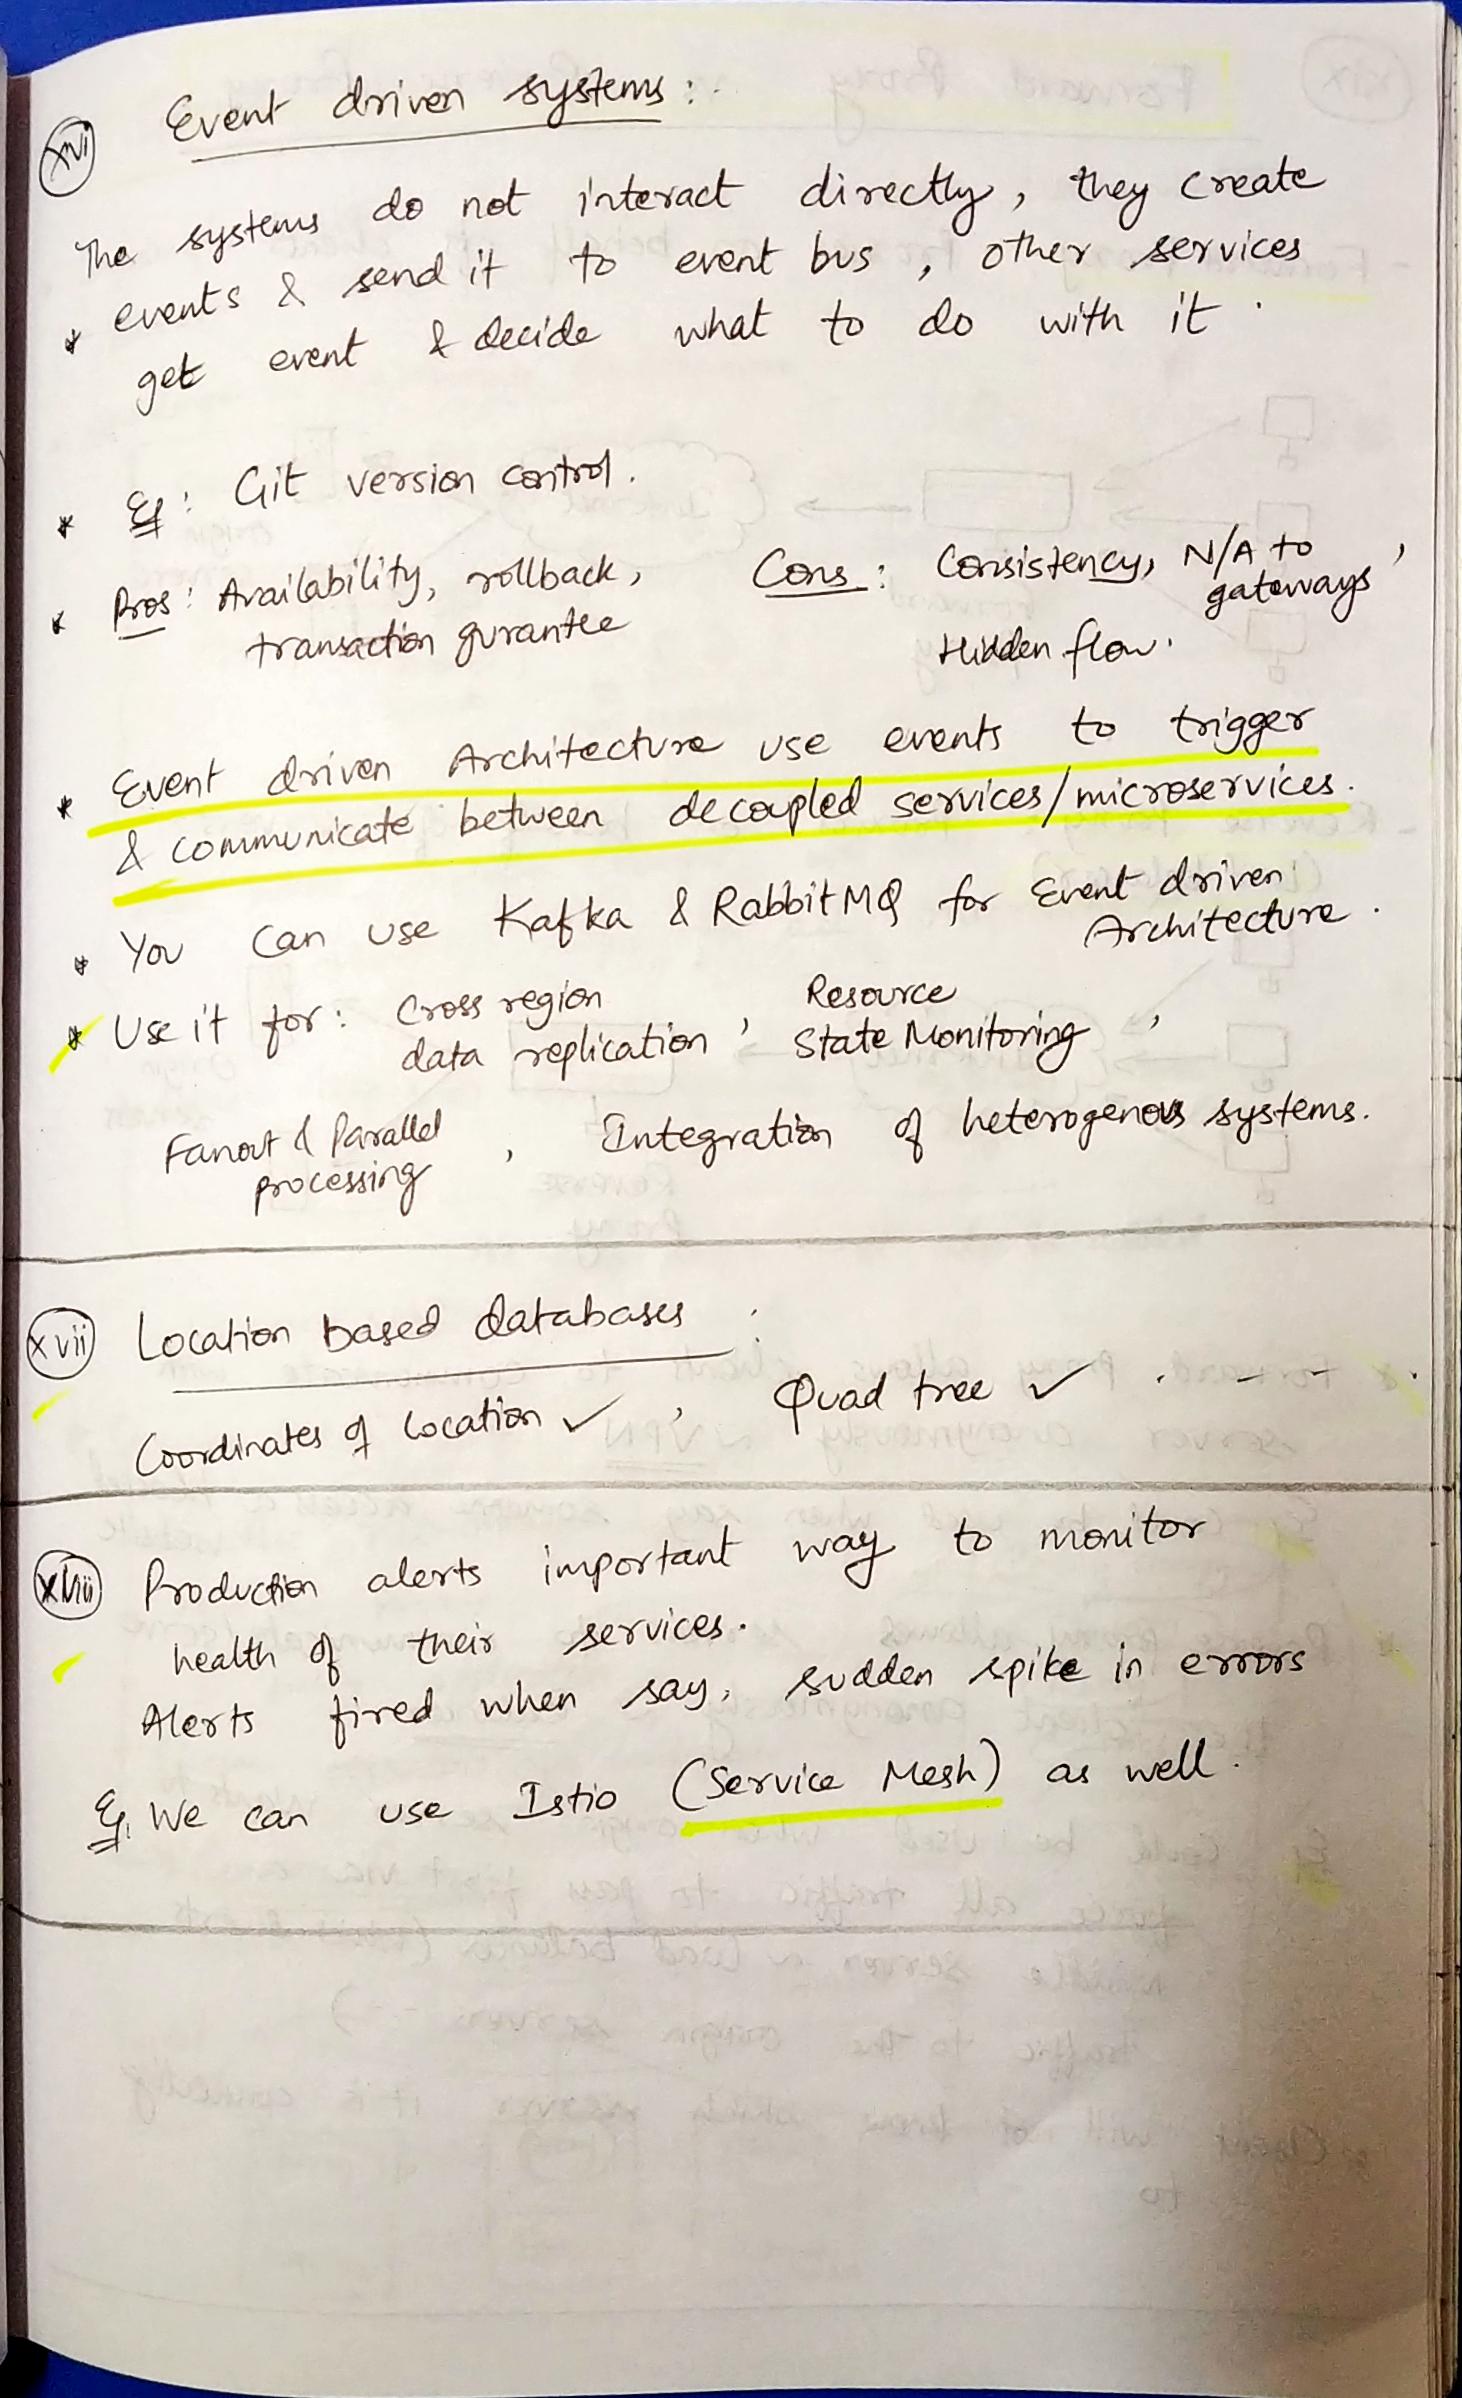 xvi Event driven systems :
The systems do not interact directly, they create
* events & send it to event bus, other services
get event & decide what to do with it.
* Eg : Git version control.
* Pros : Availability, rollback,
transaction gurantee
Cons : Consistency, N/A to gateways,
Hidden flow.
* Event driven Architecture use events to trigger
& communicate between decoupled services/microservices.
* You can use Kafka & RabbitMQ for Event driven
Architecture.
* Use it for : Cross region data replication, Resource State Monitoring,
Fanout & Parallel processing, Integration of heterogenous systems.
xvii Location based databases :
Coordinates of location ✓, Quad tree ✓ . - - .
xviii Production alerts important way to monitor
health of their services.
Alerts fired when say, sudden spike in errors
Eg, We can use Istio (Service Mesh) as well.